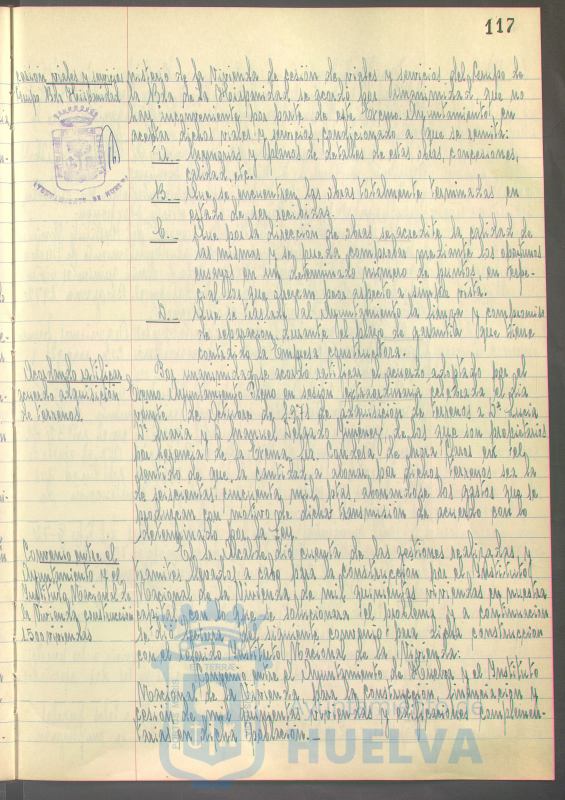 117
cesión viales y servicios
Grupo Bda Hispanidad
AYUNTAMIENTO DE HUELVA
nisterio de la Vivienda de cesión de viales y servicios del Grupo de
la Bda de la Hispanidad, se acordó por unanimidad que no
hay inconveniente por parte de este Excmo. Ayuntamiento, en
aceptar dichos viales y servicios, condicionado a que se remita:
A.- Memorias y planos de detalles de estas obras, concesiones,
calidad, etc.
B.- Que se encuentren las obras totalmente terminadas en
estado de ser recibidas.
C.- Que por la dirección de obras se acredite la calidad de
las mismas y se pueda comprobar mediante los oportunos
ensayos en un determinado número de puntos, en espe-
cial los que ofrezcan peor aspecto a simple vista.
D.- Que se traslade al Ayuntamiento la fianza y compromiso
de reparación durante el plazo de garantía que tiene
contraído la Empresa constructora.
Acordando ratificar
acuerdo adquisición
de terrenos.
Por unanimidad se acordó ratificar el acuerdo adoptado por el
Excmo. Ayuntamiento Pleno en sesión extraordinaria celebrada el día
veinte de Octubre de 1973 de adquisición de terrenos a Dª Lucía
Dª María y D. Manuel Delgado Jiménez de los que son propietarios
por herencia de la Excma. Sra. Condesa de Mora Claros en el
sentido de que la cantidad a abonar por dichos terrenos sea la
de seiscientas cincuenta mil ptas. abonándose los gastos que se
produzcan con motivo de dicha transmisión de acuerdo con lo
determinado por la Ley.
Convenio entre el
Ayuntamiento y el
Instituto Nacional de
la Vivienda construcción
1500 viviendas
Por la Alcaldía dió cuenta de las gestiones realizadas y
trámites llevados a cabo para la construcción por el Instituto
Nacional de la Vivienda de mil quinientas viviendas en nuestra
capital, con lo que se solucionará el problema y a continuación
se dió lectura del siguiente convenio para dicha construcción
con el referido Instituto Nacional de la Vivienda:
Convenio entre el Ayuntamiento de Huelva y el Instituto
Nacional de la Vivienda, para la construcción, financiación y
cesión de mil quinientas viviendas y edificaciones complemen-
tarias en dicha población.-
Ayuntamiento de
HUELVA